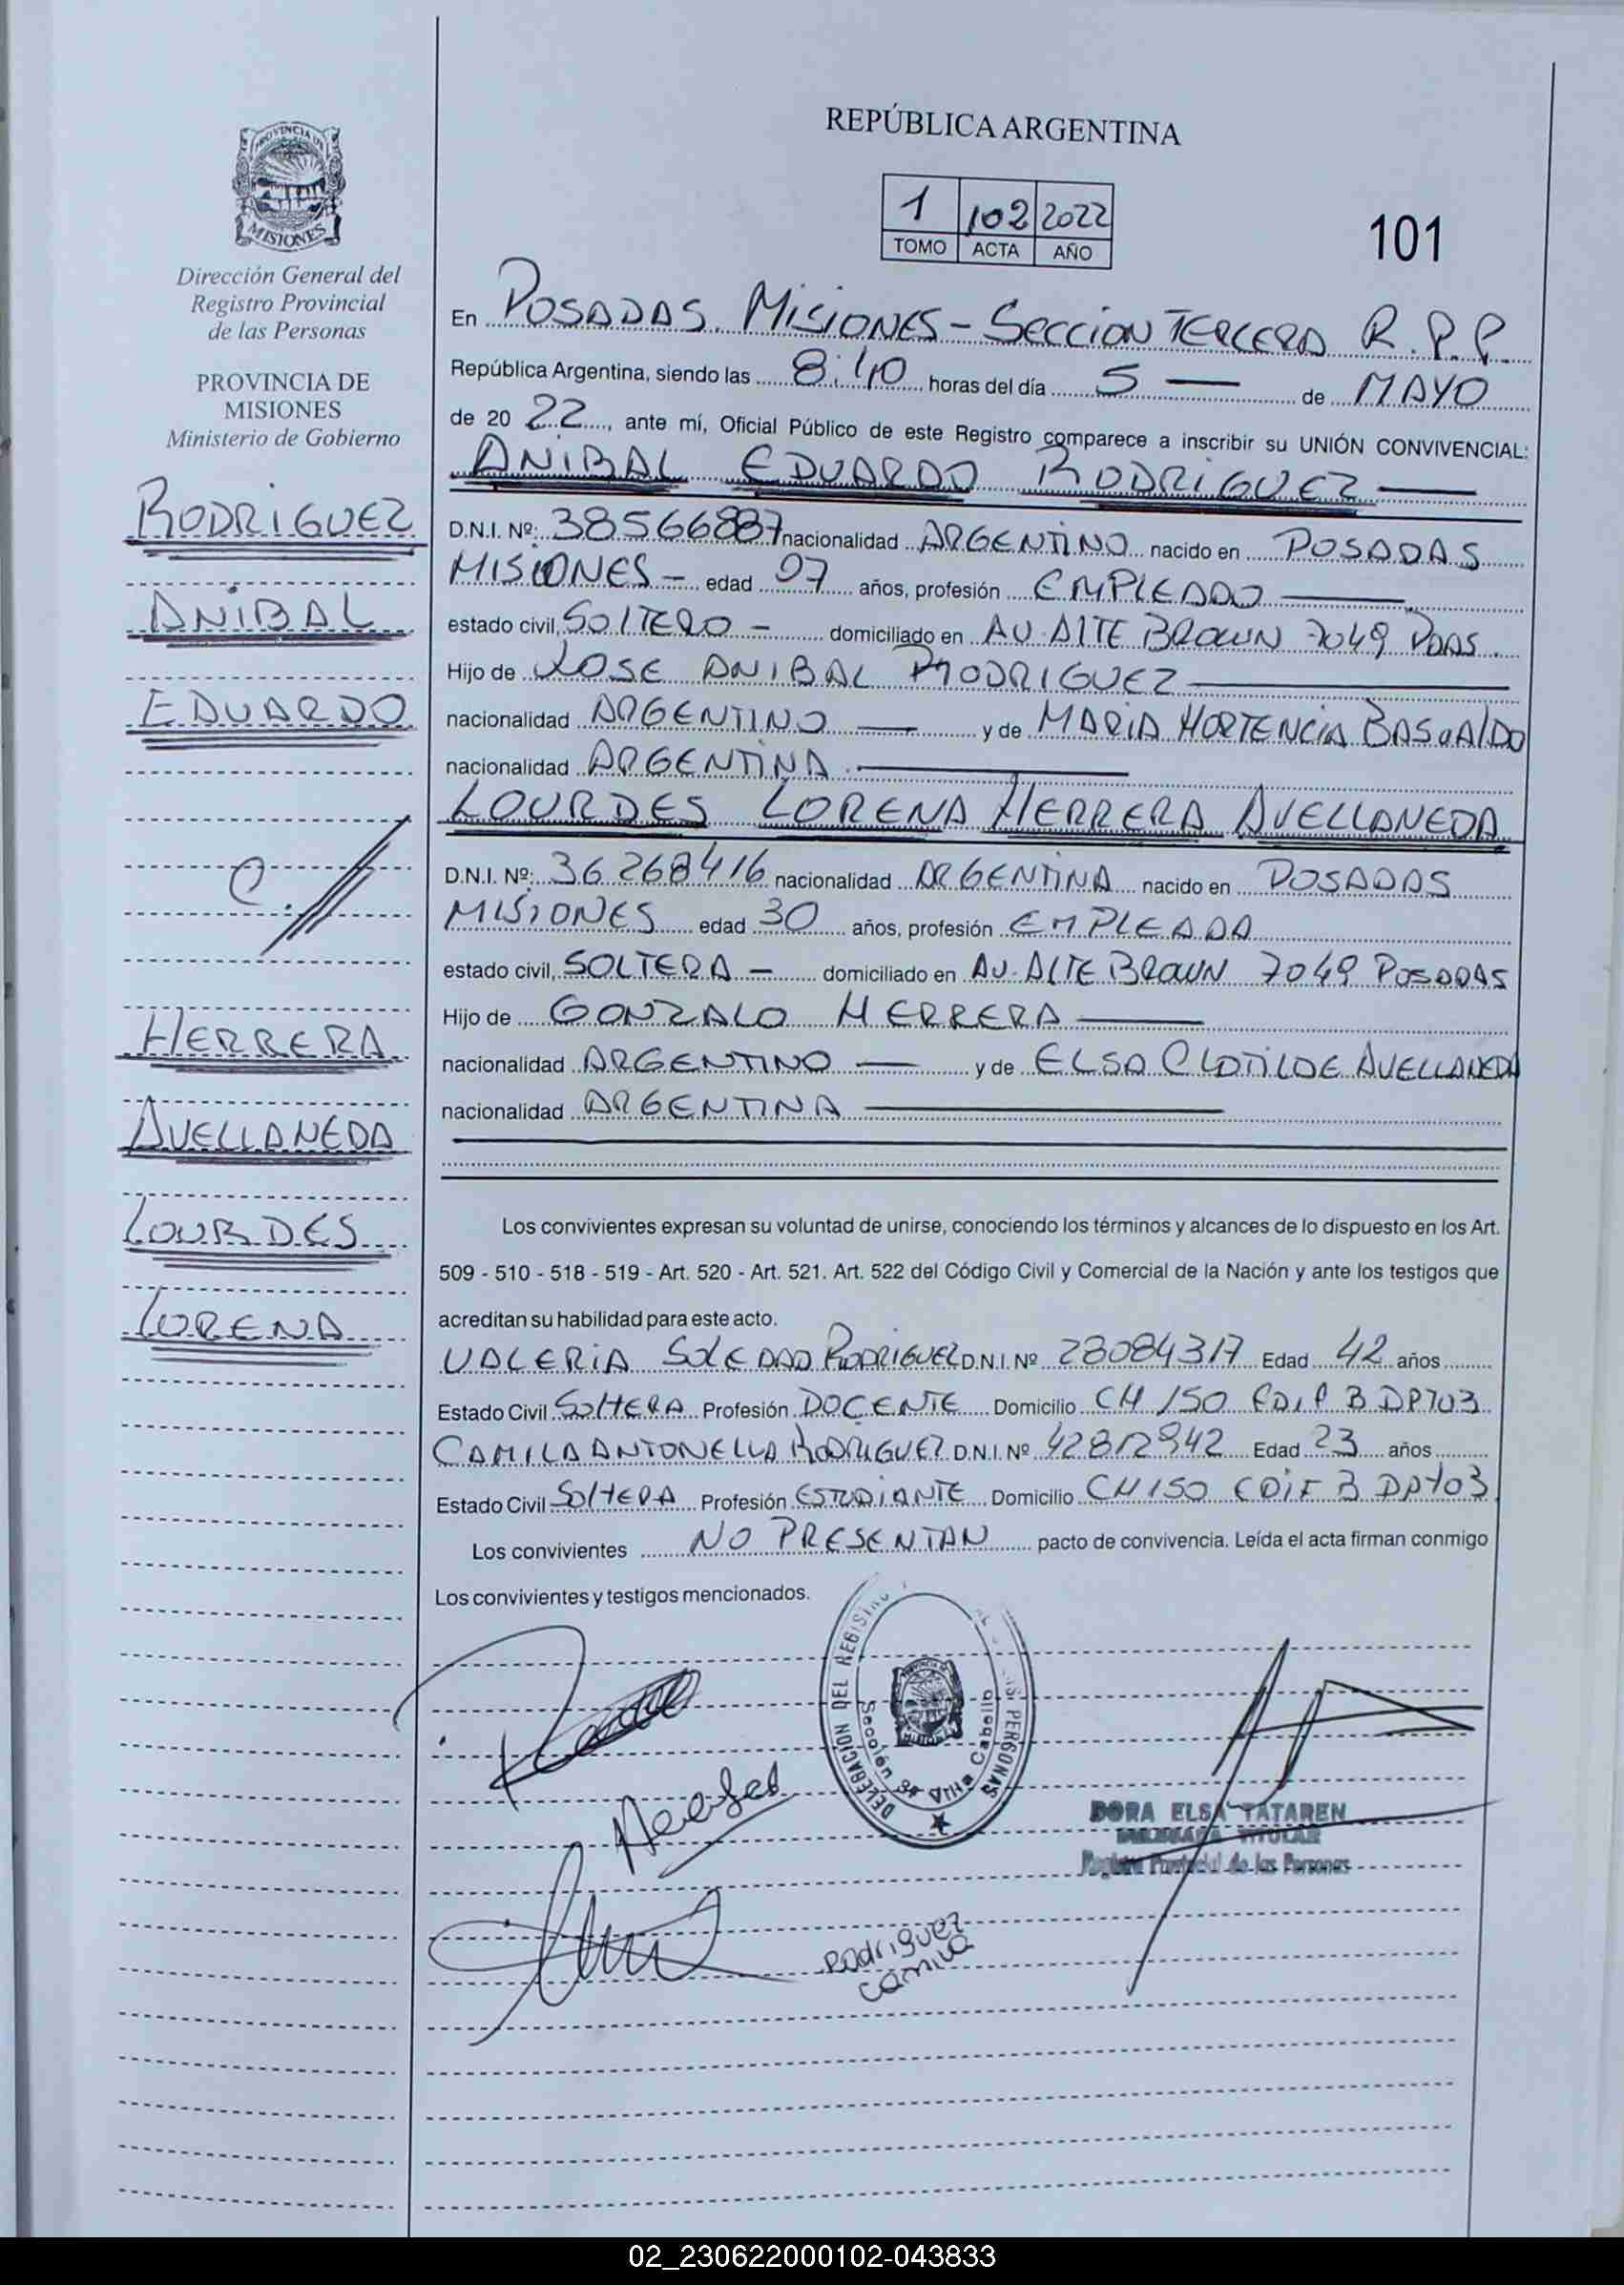 PROVINCIA DE
MISIONES
Dirección General del
Registro Provincial
de las Personas
PROVINCIA DE
MISIONES
Ministerio de Gobierno
RODRIGUEZ
ANIBAL
EDUARDO
C.
HERRERA
AVELLANEDA
LOURDES
LORENA
REPÚBLICA ARGENTINA
1 102 2022
TOMO ACTA AÑO
101
En POSADAS. MISIONES - SECCION TERCERA R.P.P.
República Argentina, siendo las 8:40 horas del día 5 — de MAYO
de 20 22, ante mí, Oficial Público de este Registro comparece a inscribir su UNIÓN CONVIVENCIAL:
ANIBAL EDUARDO RODRIGUEZ —
D.N.I. Nº: 38566887 nacionalidad ARGENTINO nacido en POSADAS
MISIONES - edad años, profesión EMPLEADO —
estado civil, SOLTERO - domiciliado en AV. ALTE BROWN 7049 PDAS.
Hijo de JOSE ANIBAL RODRIGUEZ —
nacionalidad ARGENTINO — y de MARIA HORTENCIA BASUALDO
nacionalidad ARGENTINA. —
LOURDES LORENA HERRERA AVELLANEDA
D.N.I. Nº: 36268416 nacionalidad ARGENTINA nacido en POSADAS
MISIONES edad 30 años, profesión EMPLEADA
estado civil, SOLTERA - domiciliado en AV. ALTE BROWN 7049 POSADAS
Hijo de GONZALO HERRERA —
nacionalidad ARGENTINO — y de ELSA CLOTILDE AVELLANEDA
nacionalidad ARGENTINA —
Los convivientes expresan su voluntad de unirse, conociendo los términos y alcances de lo dispuesto en los Art.
509 - 510 - 518 - 519 - Art. 520 - Art. 521. Art. 522 del Código Civil y Comercial de la Nación y ante los testigos que
acreditan su habilidad para este acto.
VALERIA SOLEDAD RODRIGUEZ D.N.I. Nº 28084317 Edad 42 años
Estado Civil SOLTERA Profesión DOCENTE Domicilio CH 150 EDIF B DPTO3
CAMILA ANTONELLA RODRIGUEZ D.N.I. Nº 42812942 Edad 23 años
Estado Civil SOLTERA Profesión ESTUDIANTE Domicilio CH 150 EDIF B DPTO3
Los convivientes NO PRESENTAN pacto de convivencia. Leída el acta firman conmigo
Los convivientes y testigos mencionados.
DELEGACION DEL REGISTRO PERSONAS
Sección 3ª Villa Cabello
DORA ELSA TATAREN
DELEGADA TITULAR
Registro Provincial de las Personas
Rodriguez
Camila
02_230622000102-043833